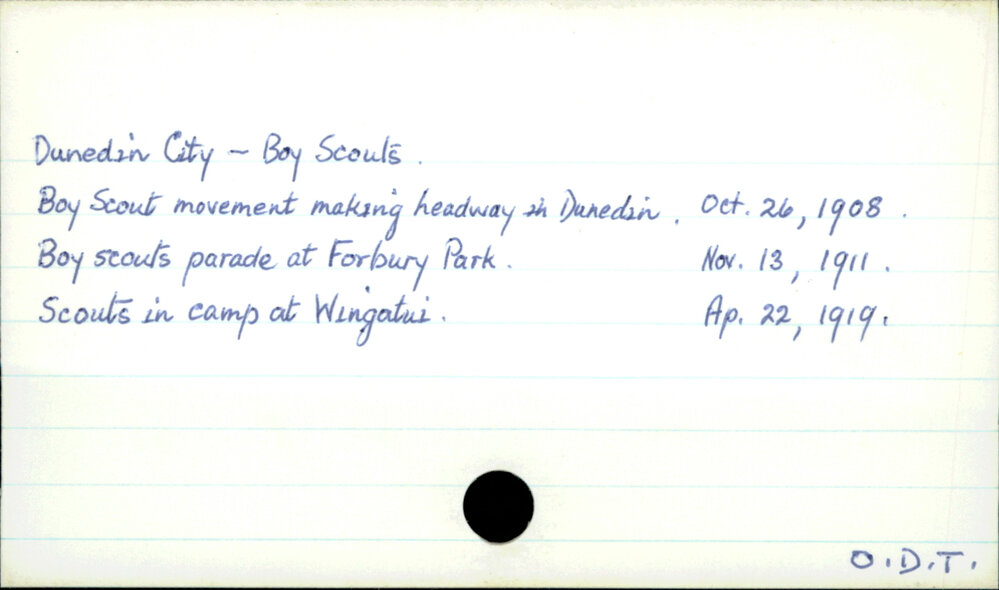 Dunedin City – Boy Scouts.
Boy Scout movement making headway in Dunedin. Oct. 26, 1908.
Boy scouts parade at Forbury Park. Nov. 13, 1911.
Scouts in camp at Wingatui. Ap. 22, 1919.
O.D.T.